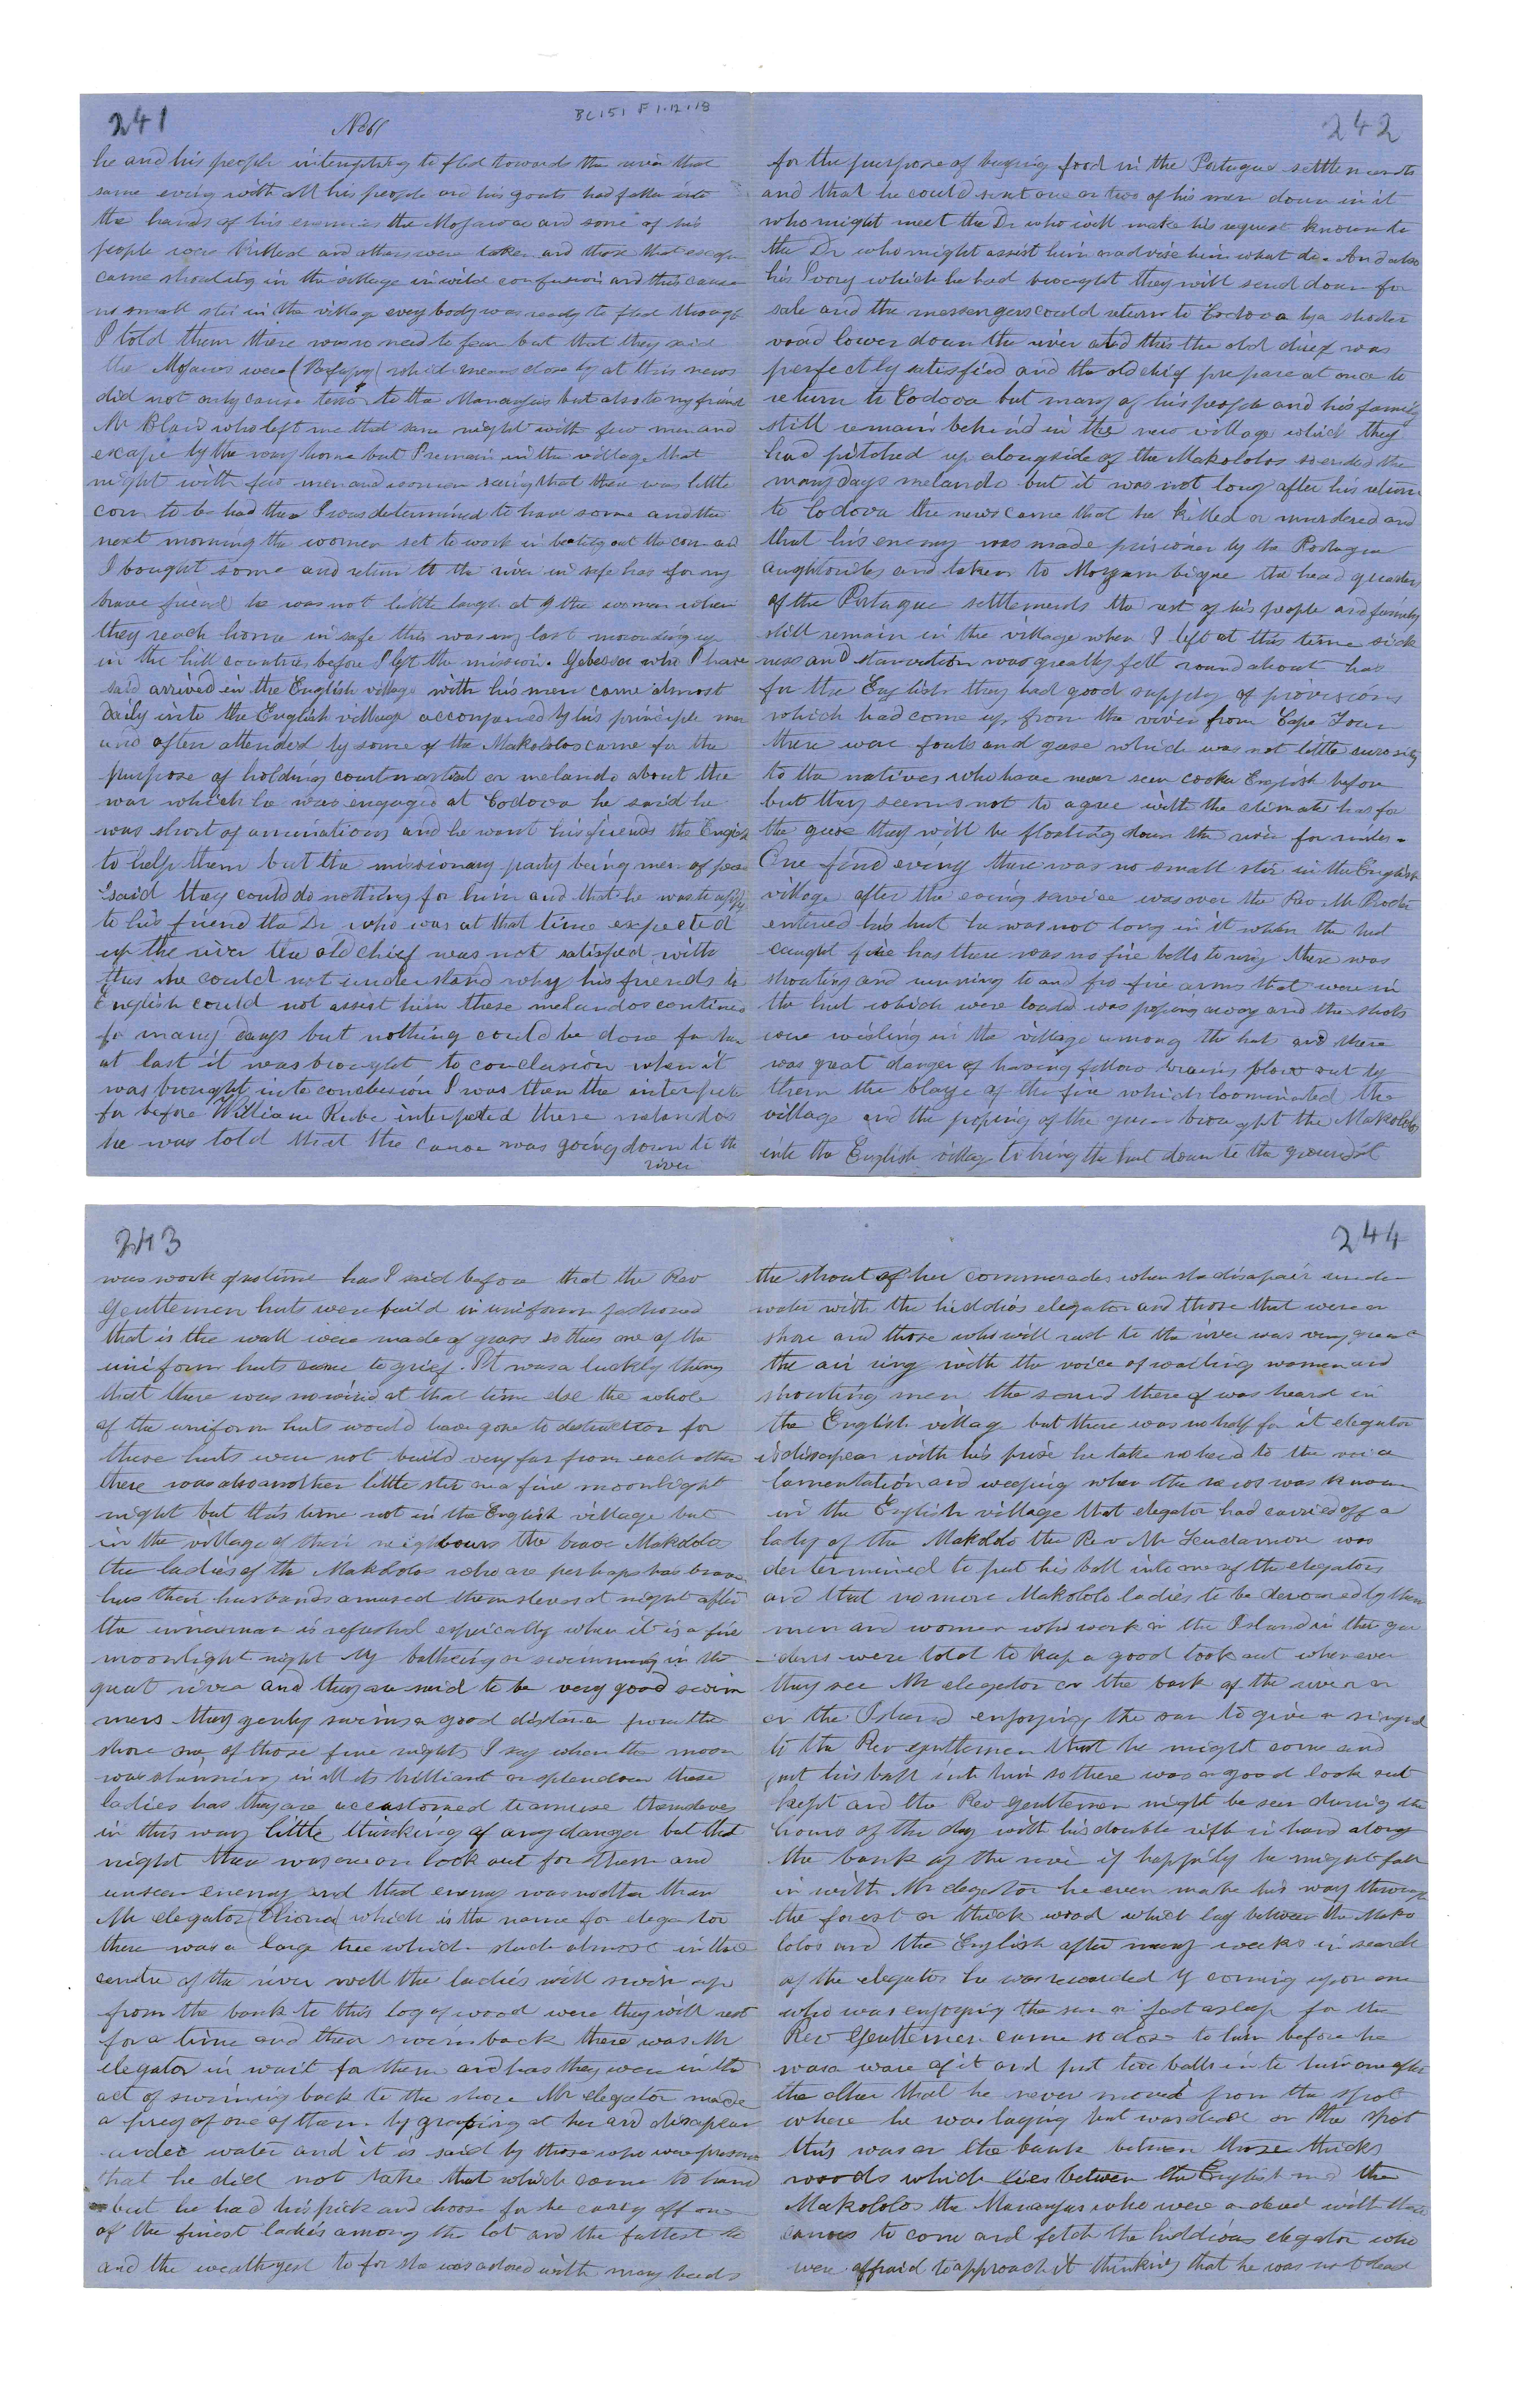 241
No 61
BC151 F1.12.18
he and his people intempting to fled towards the river that
same evning with all his people and his goats had fallen into
the hands of his enemies the Mojawae and some of his
people were killed and others were taken and those that escape
came shouting in the village in wild confusion and this cause
no small stir in the village every body was ready to fled though
I told them there was no need to fear but that they said
the Mojawas were ( ) which means close by at this news
did not only cause terror to the Manganjas but also to my friend
Mr Blair who left me that same night with few men and
escape by the way home but I remain in the village that
night with few men and women seeing that there was little
corn to be had there I was determined to have some and the
next morning the women set to work in beating out the corn and
I bought some and return to the river in safe has for my
brave friend he was not little laugh at by the women when
they reach home in safe this was my last
in the hill countries before I left the mission. Gebessa who I have
said arrived in the English village with his men came almost
daily into the English village accompanied by his principle men
and often attended by some of the Makololos came for the
purpose of holding courtmartial or melando about the
war which he was engaged at Codova he said he
was short of aminations and he want his friends the English
to help them but the missionary party being men of peace
said they could do nothing for him and that he was to apply
to his friend the Dr who was at that time expected
up the river the old chief was not satisfied with
this he could not understand why his friends the
English could not assist him these melandos continued
for many days but nothing could be done for him
at last it was brought to conclusion when it
was brought into conclusion I was then the interpeter
for before William Rube interpeted these melandos
he was told that the canoe was going down to the
river
242
for the purpose of buying food in the Portugue settlements
and that he could sent one or two of his men down in it
who might meet the Dr who will make his request known to
the Dr who might assist him or advise him what do. And also
his Ivory which he had brought they will send down for
sale and the messengers could return to Codova by a shorter
road lower down the river at this the old chief was
perfectly satisfied and the old chief prepare at once to
return to Codova but many of his people and his family
still remain behind in the new village which they
had pitched up alongside of the Makololos so ended the
many days melando but it was not long after his return
to Codova the news came that he killed or murdered and
that his enemy was made prisioner by the Portugue
aughtorities and taken to Mozambique the head quarters
of the Portugue settlements the rest of his people and family
still remain in the village when I left at this time sick
ness and starvation was greatly felt round about has
for the English they had good supply of provisions
which had come up from the river from Cape Town
there were fouls and geese which was not little curosity
to the natives who have never seen cocka English before
but they seems not to agree with the climate has for
the geese they will be floating down the river for miles.
One find evning there was no small stir in the English
village after the evning service was over the Rev Mr Procter
entered his hut he was not long in it when the hut
caught fire has there was no fire bells to ring there was
shouting and running to and fro fire arms that were in
the hut which were loaded was poping away and the shots
were wisling in the village among the huts and there
was great danger of having fellow brains blow out by
them the blaze of the fire which loominated the
village and the poping of the guns brought the Makololos
into the English village to bring the hut down to the ground it
243
was work of no time has I said before that the Rev
Gentlemen huts were build in uniform fashoned
that is the wall were made of grass so thus one of the
uniform huts came to grief. It was a luckly thing
that there was no wind at that time else the whole
of the uniform huts would have gone to destruction for
these huts were not build very far from each other
there was also another little stir on a fine moonlight
night but this time not in the English village but
in the village of their neighbours the brave Makololos
the ladies of the Makololos who are perhaps has brave
has their husbands amused themsleves at night after
the innerman is refreshed espically when it is a fine
moonlight night by batheing or swimming in the
great river and they are said to be very good swim
mers they gently swims a good distance from the
shore one of those fine nights I say when the moon
was shinning in all its brilliant or splendour these
ladies has they are accustomed to amuse themsleves
in this way little thinking of any danger but that
night there was one on look out for them and
unseen enemy and that enemy was no other than
Mr elegator ( ) which is the name for elegator
there was a large tree which stuck almost in the
centre of the river well the ladies will swim up
from the bank to this log of wood were they will rest
for a time and then swim back there was Mr
elegator in wait for them and has they were in the
act of swiming back to the shore Mr elegator made
a prey of one of them by grasping at her and disapear
under water and it is said by those who were present
that he did not take that which came to hand
but he had his pick and choose for he carry off one
of the finest ladies among the lot and the fattest to
and the wealthyest to for she was adored with many beeds
244
the shout of her commerades when she disapair under
water with the hiddios elegator and those that were on
shore and those who will rush to the river was very great
the air ring with the voice of wailing women and
shouting men the sound there of was heard in
the English village but there was no half for it elegator
is disapear with his prise he take no heed to the voice
lamentation and weeping when the news was known
in the English village that elegator had carried off a
lady of the Makololo the Rev Mr Scudamore was
dertermined to put his ball into one of the elegators
and that no more Makololo ladies to be devoured by them
men and women who work on the Island in the gar
-dens were told to keep a good look out whenever
they see Mr elegator on the bank of the river or
on the Island enjoying the sun to give a singnal
to the Rev gentlemen that he might come and
put his ball into him so there was a good look out
kept and the Rev gentlemen might be seen during the
hours of the day with his double rifle in hand along
the bank of the river if happily he might fall
in with Mr elegator he even make his way through
the forest or thick wood which lay between the Mako
lolos and the English after many weeks in search
of the elegator he was rewarded by coming upon one
who was enjoying the sun or fast asleep for the
Rev Gentlemen came so close to him before he
was a ware of it and put two balls into him one after
the other that he never moved from the spot
where he was laying but was dead on the spot
this was on the bank between those thicks
woods which lies between the English and the
Makololos the Manganjas who were ordered with their
canoes to come and fetch the hiddious elegator who
were affraid to approach it thinking that he was not dead